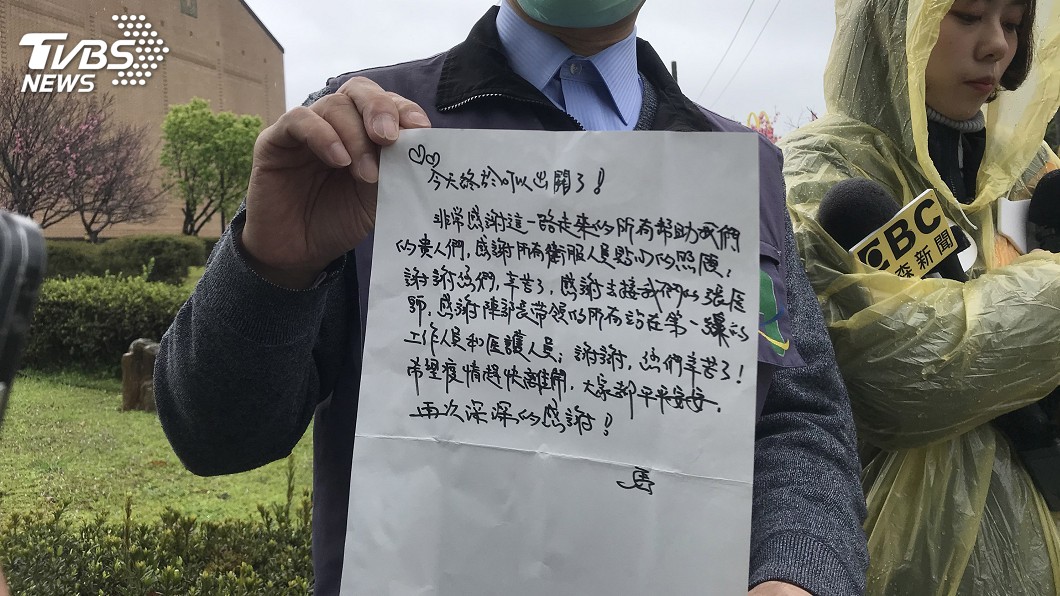 TVBS
NEWS
今天終於可以出關了!
非常感謝這一路走來的所有幫助我們
的貴人們,感謝所有衛服人員貼心的照顧,
謝謝您們,辛苦了,感謝去接我們的張醫
師,感謝陳部長帶領的所有站在第一線的
工作人員和医護人員,謝謝,您們辛苦了!
希望疫情趕快離開,大家都平平安安.
再次深深的感謝!
馬
CBC
森新聞